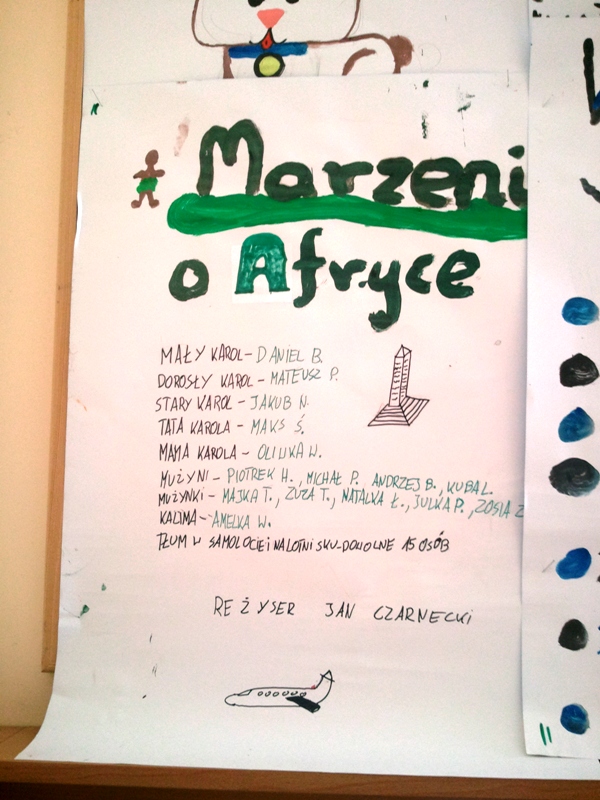 Marzeni
o Afryce
MAŁY KAROL - DANIEL B.
DOROSŁY KAROL - MATEUSZ P.
STARY KAROL - JAKUB N.
TATA KAROLA - MAKS Ś.
MAMA KAROLA - OLIWKA W.
MUŻYNI - PIOTREK H., MICHAŁ P. ANDRZEJ B., KUBA L.
MUŻYNKI - MAJKA T., ZUZA T., NATALKA Ł., JULKA P., ZOSIA Z
KALIMA - AMELKA W.
TŁUM W SAMOLOCIE I NA LOTNISKU - DOWOLNE 15 OSÓB
REŻYSER JAN CZARNECKI